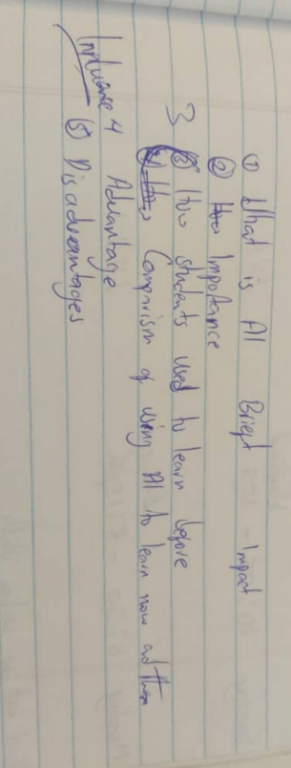 ① What is AI Brief Impact
② Importance
3 How students used to learn before
Comparism of using AI to learn now and then
Influence 4 Advantage
⑤ Disadvantages